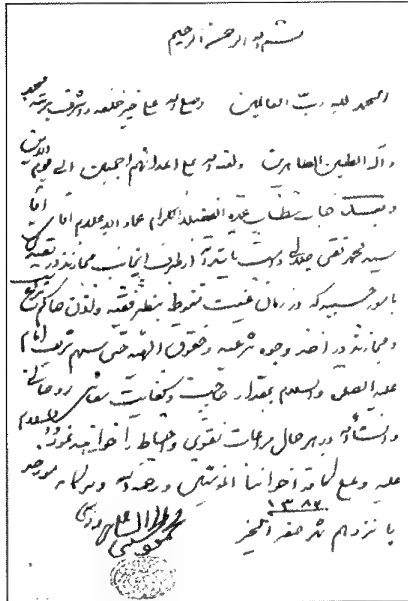 بسم الله الرحمن الرحیم
الحمد لله رب العالمین وصلی الله علی خیر خلقه واشرف بریته محمد
وآله الطیبین الطاهرین ولعنة الله علی اعدائهم اجمعین الی یوم الدین
وبعد جناب مستطاب عمدة الفضلاء الکرام عماد الاعلام آقای آقا
سید محمد تقی دامت تأییداته از طرف اینجانب مجازند در تصدی
بامور حسبیه که در زمان غیبت منوط بنظر فقیه واذن حاکم شرع
ومجازند در اخذ وجوه شرعیه وحقوق الهیه حتی سهم مبارک امام
علیه الصلاة والسلام بمقدار حاجت وکفایت
وانشاء الله در هر حال مراعات تقوی واحتیاط را خواهند نمود والسلام
علیه وعلی کافة اخواننا المؤمنین ورحمة الله وبرکاته مورخه
پانزدهم شهر صفر الخیر ۱۳۸۷